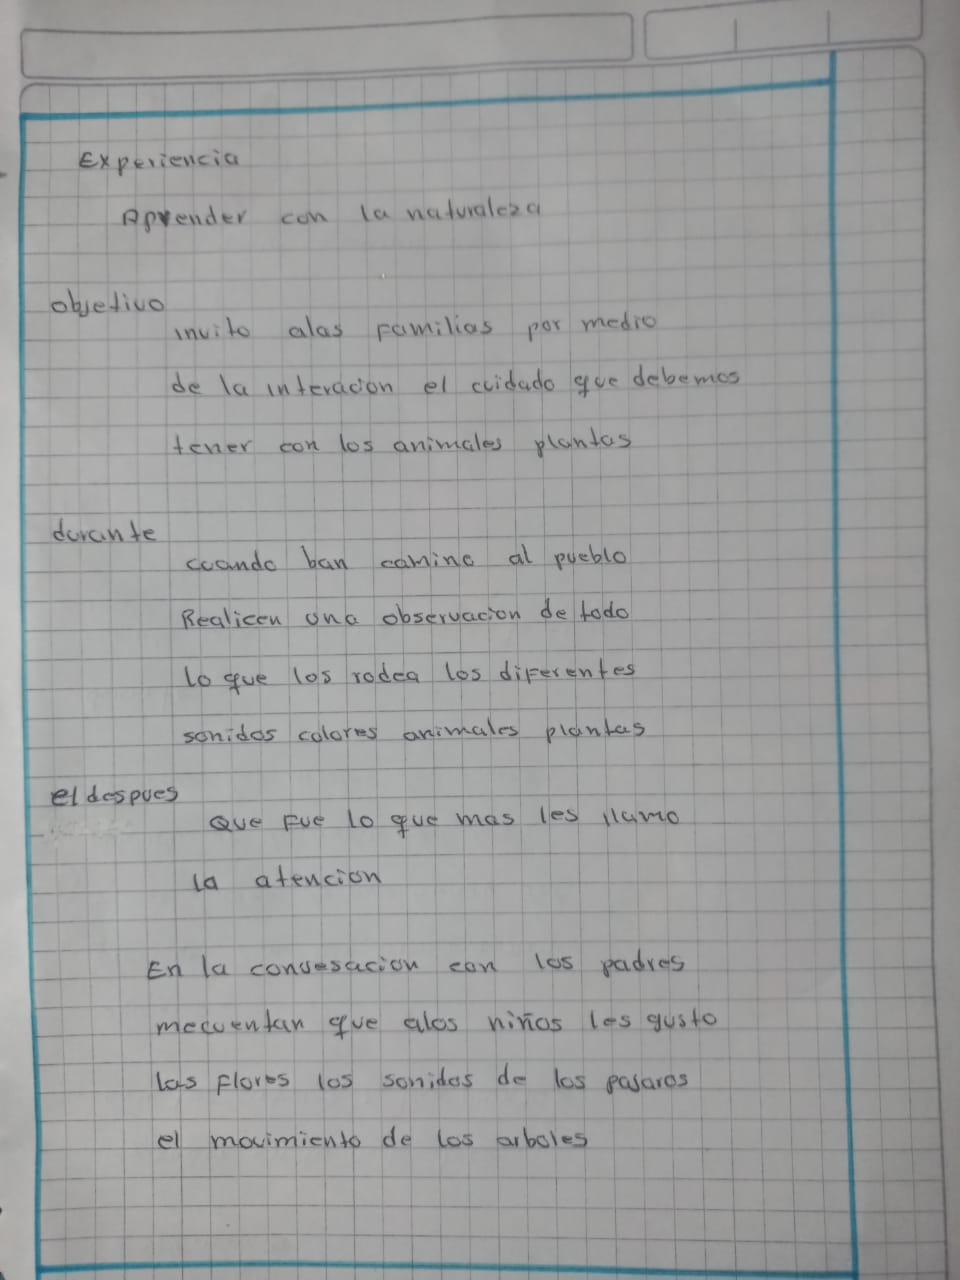 Experiencia
Aprender con la naturaleza
objetivo
invito alas familias por medio
de la interacion el cuidado que debemos
tener con los animales plantas
durante
cuando ban camino al pueblo
Realicen una observacion de todo
lo que los rodea los diferentes
sonidos colores animales plantas
el despues
Que fue lo que mas les llamo
la atencion
En la convesacion con los padres
mecuentan que alos niños les gusto
las flores los sonidos de los pajaros
el movimiento de los arboles